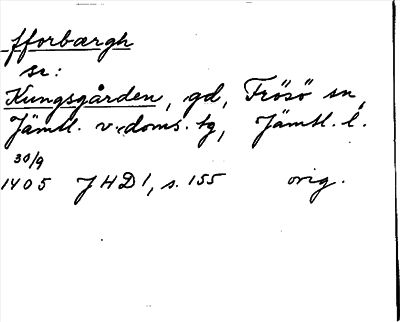 fforbærgh
se:
Kungsgården, gd, Frösö sn,
Jämtl. v. doms. tg, Jämtl. l.
30/9
1405 JHD 1, s. 155 orig.